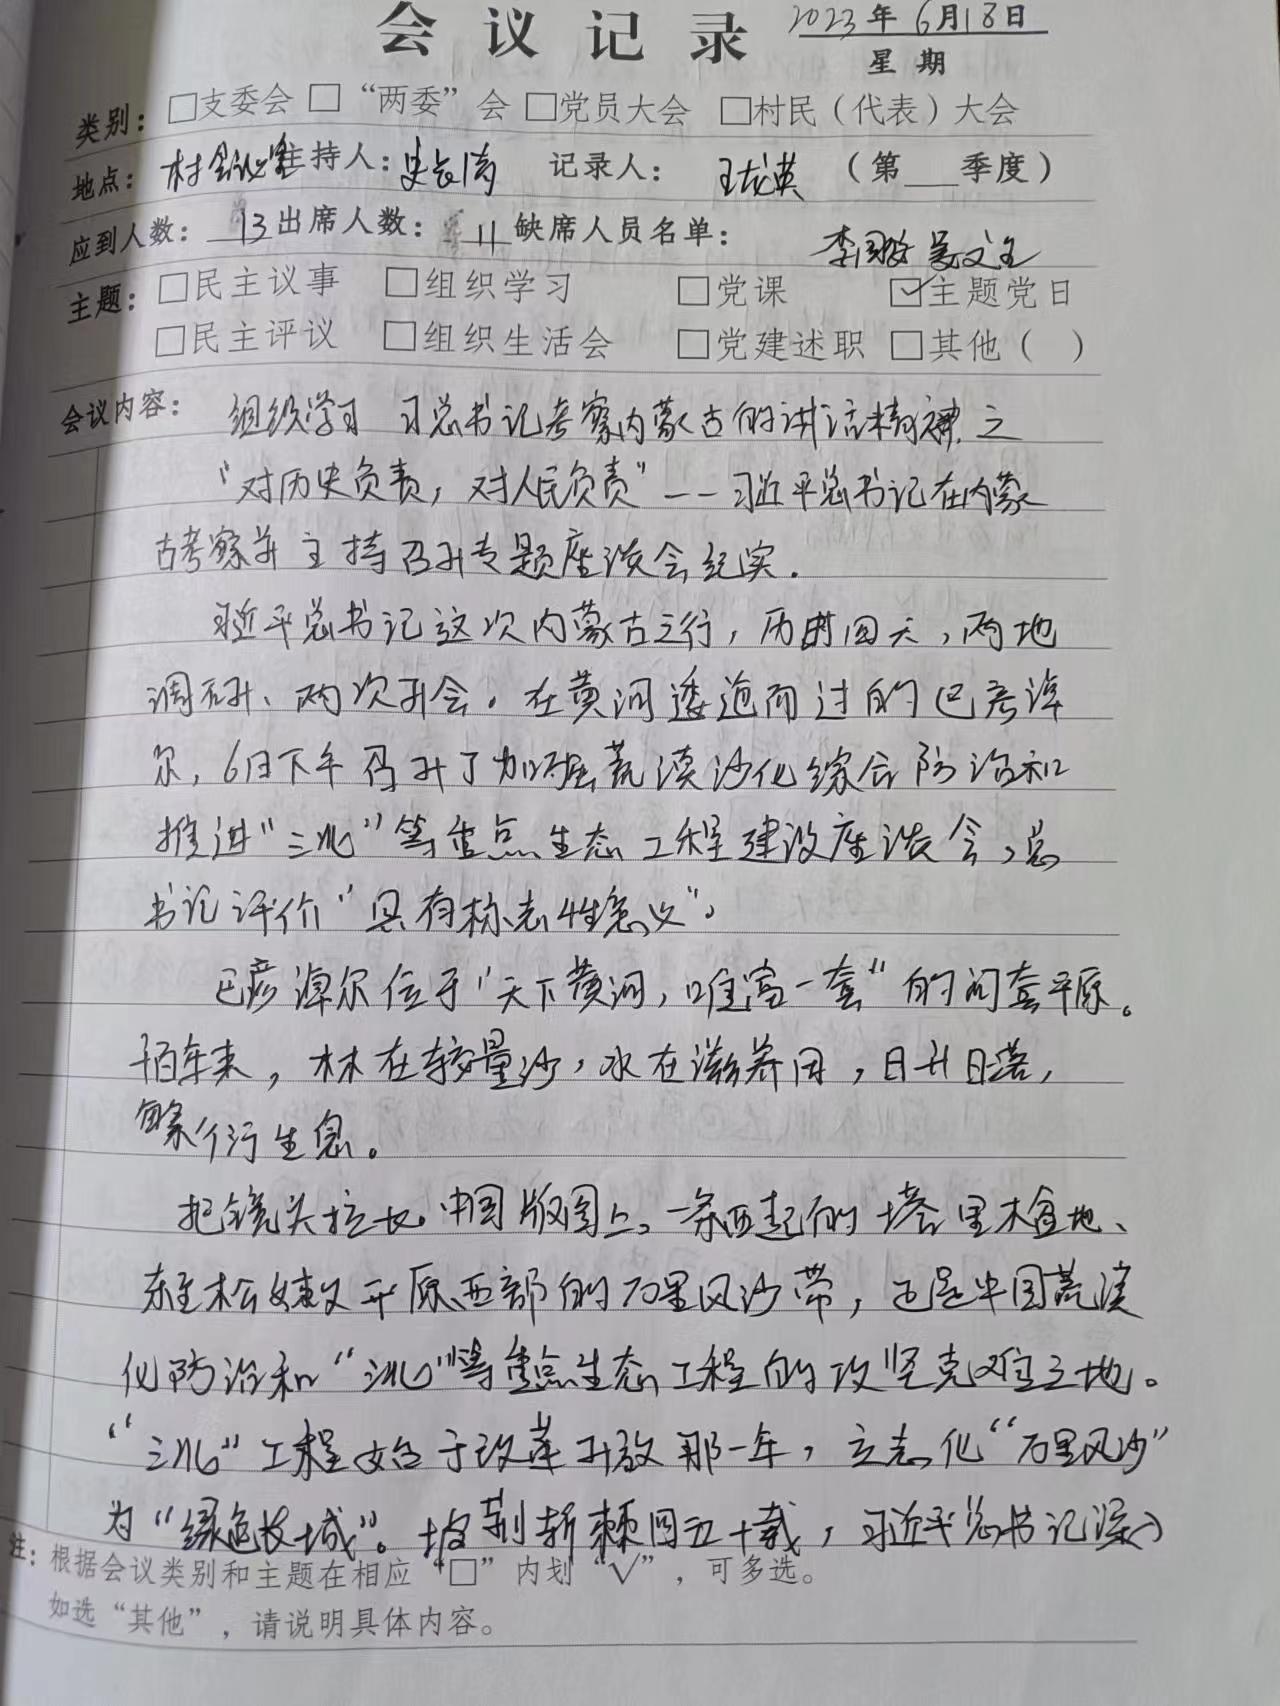 会议记录 2023年6月18日
星期
类别：□支委会 □“两委”会 □党员大会 □村民（代表）大会
地点：村会议室 主持人： 记录人：王龙英 （第___季度）
应到人数：13 出席人数：11 缺席人员名单：
主题：□民主议事 □组织学习 □党课 ☑主题党日
□民主评议 □组织生活会 □党建述职 □其他（ ）
会议内容： 组织学习 习总书记考察内蒙古的讲话精神之
“对历史负责，对人民负责”——习近平总书记在内蒙
古考察并主持召开专题座谈会纪实.
习近平总书记这次内蒙古之行，历时四天，两地
调研、两次开会。在黄河逶迤而过的巴彦淖
尔，6日下午召开了加强荒漠沙化综合防治和
推进“三北”等重点生态工程建设座谈会，总
书记评价“具有标志性意义”。
巴彦淖尔位于“天下黄河，唯富一套”的河套平原。
千百年来，林在较量沙，水在滋养田，日升日落，
繁衍生息。
把镜头拉长，中国版图上，一条西起的塔里木盆地、
东至松嫩平原西部的万里风沙带，正是中国荒漠
化防治和“三北”等重点生态工程的攻坚克难之地。
“三北”工程始于改革开放那一年，立志化“万里风沙”
为“绿色长城”。披荆斩棘四五十载，习近平总书记深入
注：根据会议类别和主题在相应“□”内划“√”，可多选。
如选“其他”，请说明具体内容。